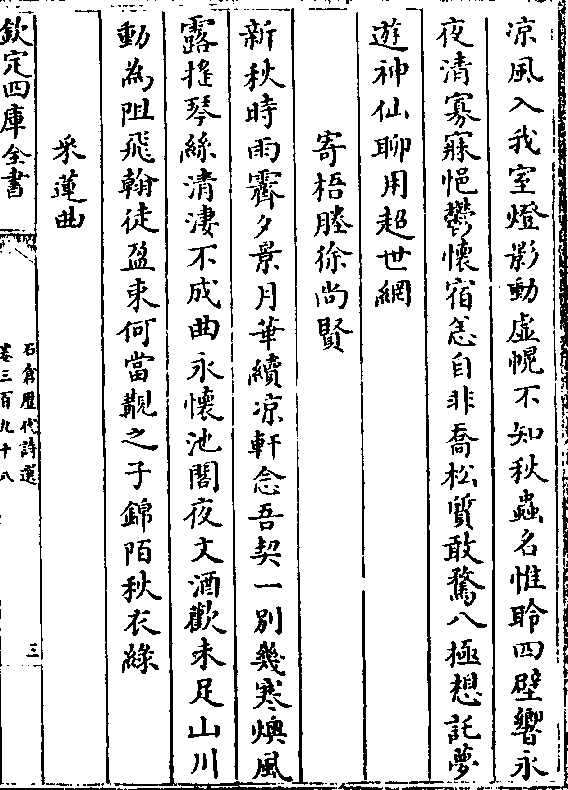 凉風入我室燈影動虛幌不知秋蟲名惟聆四壁響永
夜清寡寐悒鬱懷宿恙自非喬松質敢騖八極想託夢
遊神仙聊用超世網
寄梧塍徐尚賢
新秋時雨霽夕景月華續凉軒念吾契一別幾寒燠風
露搖琴絲清淒不成曲永懷池閣夜文酒歡未足山川
動為阻飛翰徒盈束何當覯之子錦陌秋衣綠
采蓮曲
欽定四庫全書
石倉歷代詩選
卷三百九十八
三